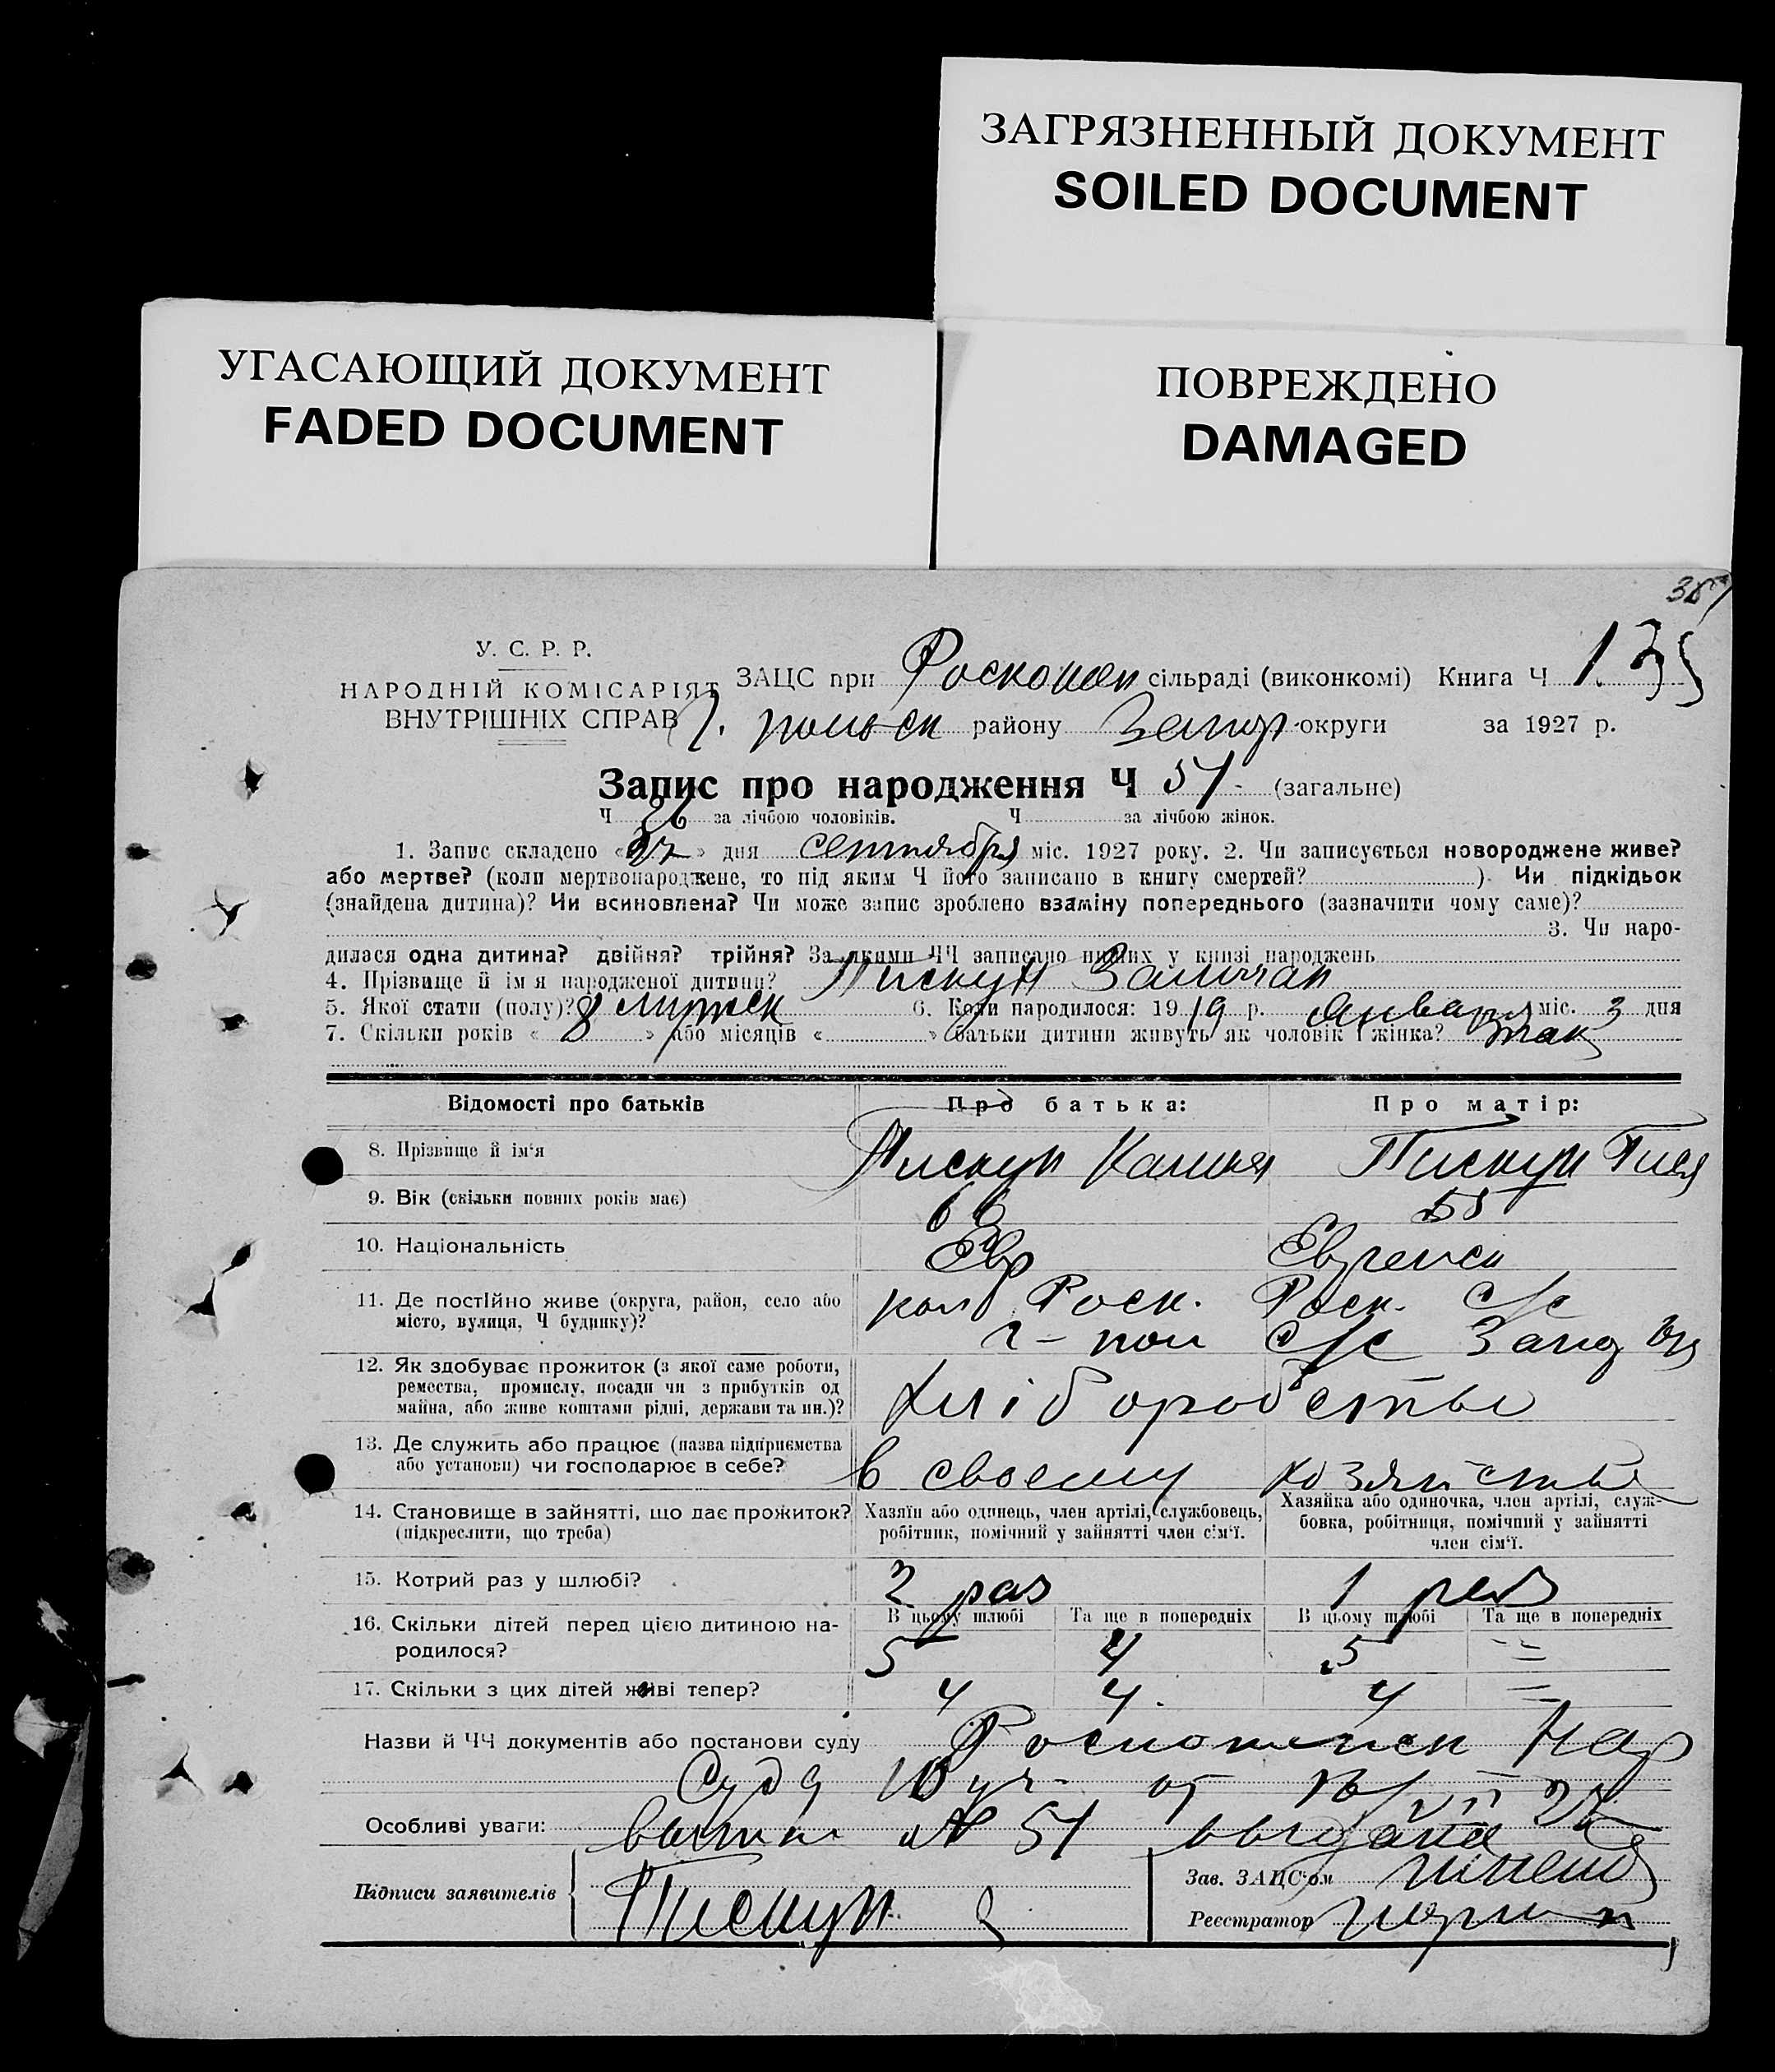 ЗАГРЯЗНЕННЫЙ ДОКУМЕНТ
SOILED DOCUMENT
УГАСАЮЩИЙ ДОКУМЕНТ
FADED DOCUMENT
ПОВРЕЖДЕНО
DAMAGED
У. С. Р. Р.
НАРОДНІЙ КОМІСАРІЯТ
ВНУТРІШНІХ СПРАВ
ЗАЦС при сільраді (виконкомі) Книга Ч
району Запор округи за 1927 р.
Запис про народження Ч 51 (загальне)
Ч 26 за лічбою чоловіків. Ч за лічбою жінок.
1. Запис складено « » дня сентября міс. 1927 року. 2. Чи записується новороджене живе?
або мертве? (коли мертвонароджене, то під яким Ч його записано в книгу смертей? ). Чи підкідьок
(знайдена дитина)? Чи всиновлена? Чи може запис зроблено взаміну попереднього (зазначити чому саме)?
3. Чи наро-
дилася одна дитина? двійня? трійня? За якими ЧЧ записано инших у книзі народжень
4. Прізвище й ім'я народженої дитини? Пискун Залман
5. Якої стати (полу)? 6. Коли народилося: 1919 р. Января міс. 3 дня
7. Скільки років « 8 » або місяців « » батьки дитини живуть як чоловік і жінка? так
Відомості про батьків
Про батька:
Про матір:
8. Прізвище й ім'я
Пискун
Пискун
9. Вік (скільки повних років має)
66
55
10. Національність
Евр
Еврейск
11. Де постійно живе (округа, район, село або
місто, вулиця, Ч будинку)?
Роск. Роск. с/с
12. Як здобуває прожиток (з якої саме роботи,
ремества, промислу, посади чи з прибутків од
майна, або живе коштами рідні, держави та ин.)?
Хліборобство
13. Де служить або працює (назва підприємства
або установи) чи господарює в себе?
в своему хозяйстве
14. Становище в зайнятті, що дає прожиток?
(підкреслити, що треба)
Хазяїн або одинець, член артілі, службовець,
робітник, помічний у зайнятті член сім'ї.
Хазяйка або одиночка, член артілі, служ-
бовка, робітниця, помічний у зайнятті
член сім'ї.
15. Котрий раз у шлюбі?
2 раз
1 раз
16. Скільки дітей перед цією дитиною на-
родилося?
В цьому шлюбі Та ще в попередніх В цьому шлюбі Та ще в попередніх
5 4 5 =
17. Скільки з цих дітей живі тепер?
4 4 4 =
Назви й ЧЧ документів або постанови суду Нар
Суда от
Особливі уваги: № 51 выдана
Підписи заявителів Пискун
Зав. ЗАЦС'ом
Реєстратор